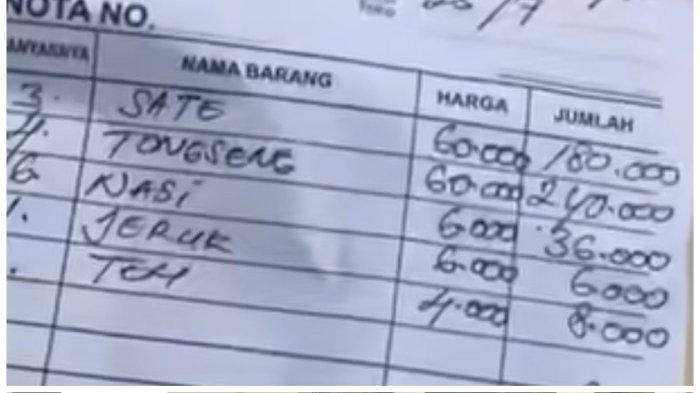 NOTA NO.
TOKO
NAMA BARANG HARGA JUMLAH
3. SATE 60.000 180.000
4. TONGSENG 60.000 240.000
6 NASI 6000 36.000
1. JERUK 6.000 6000
TEH 4.000 8.000